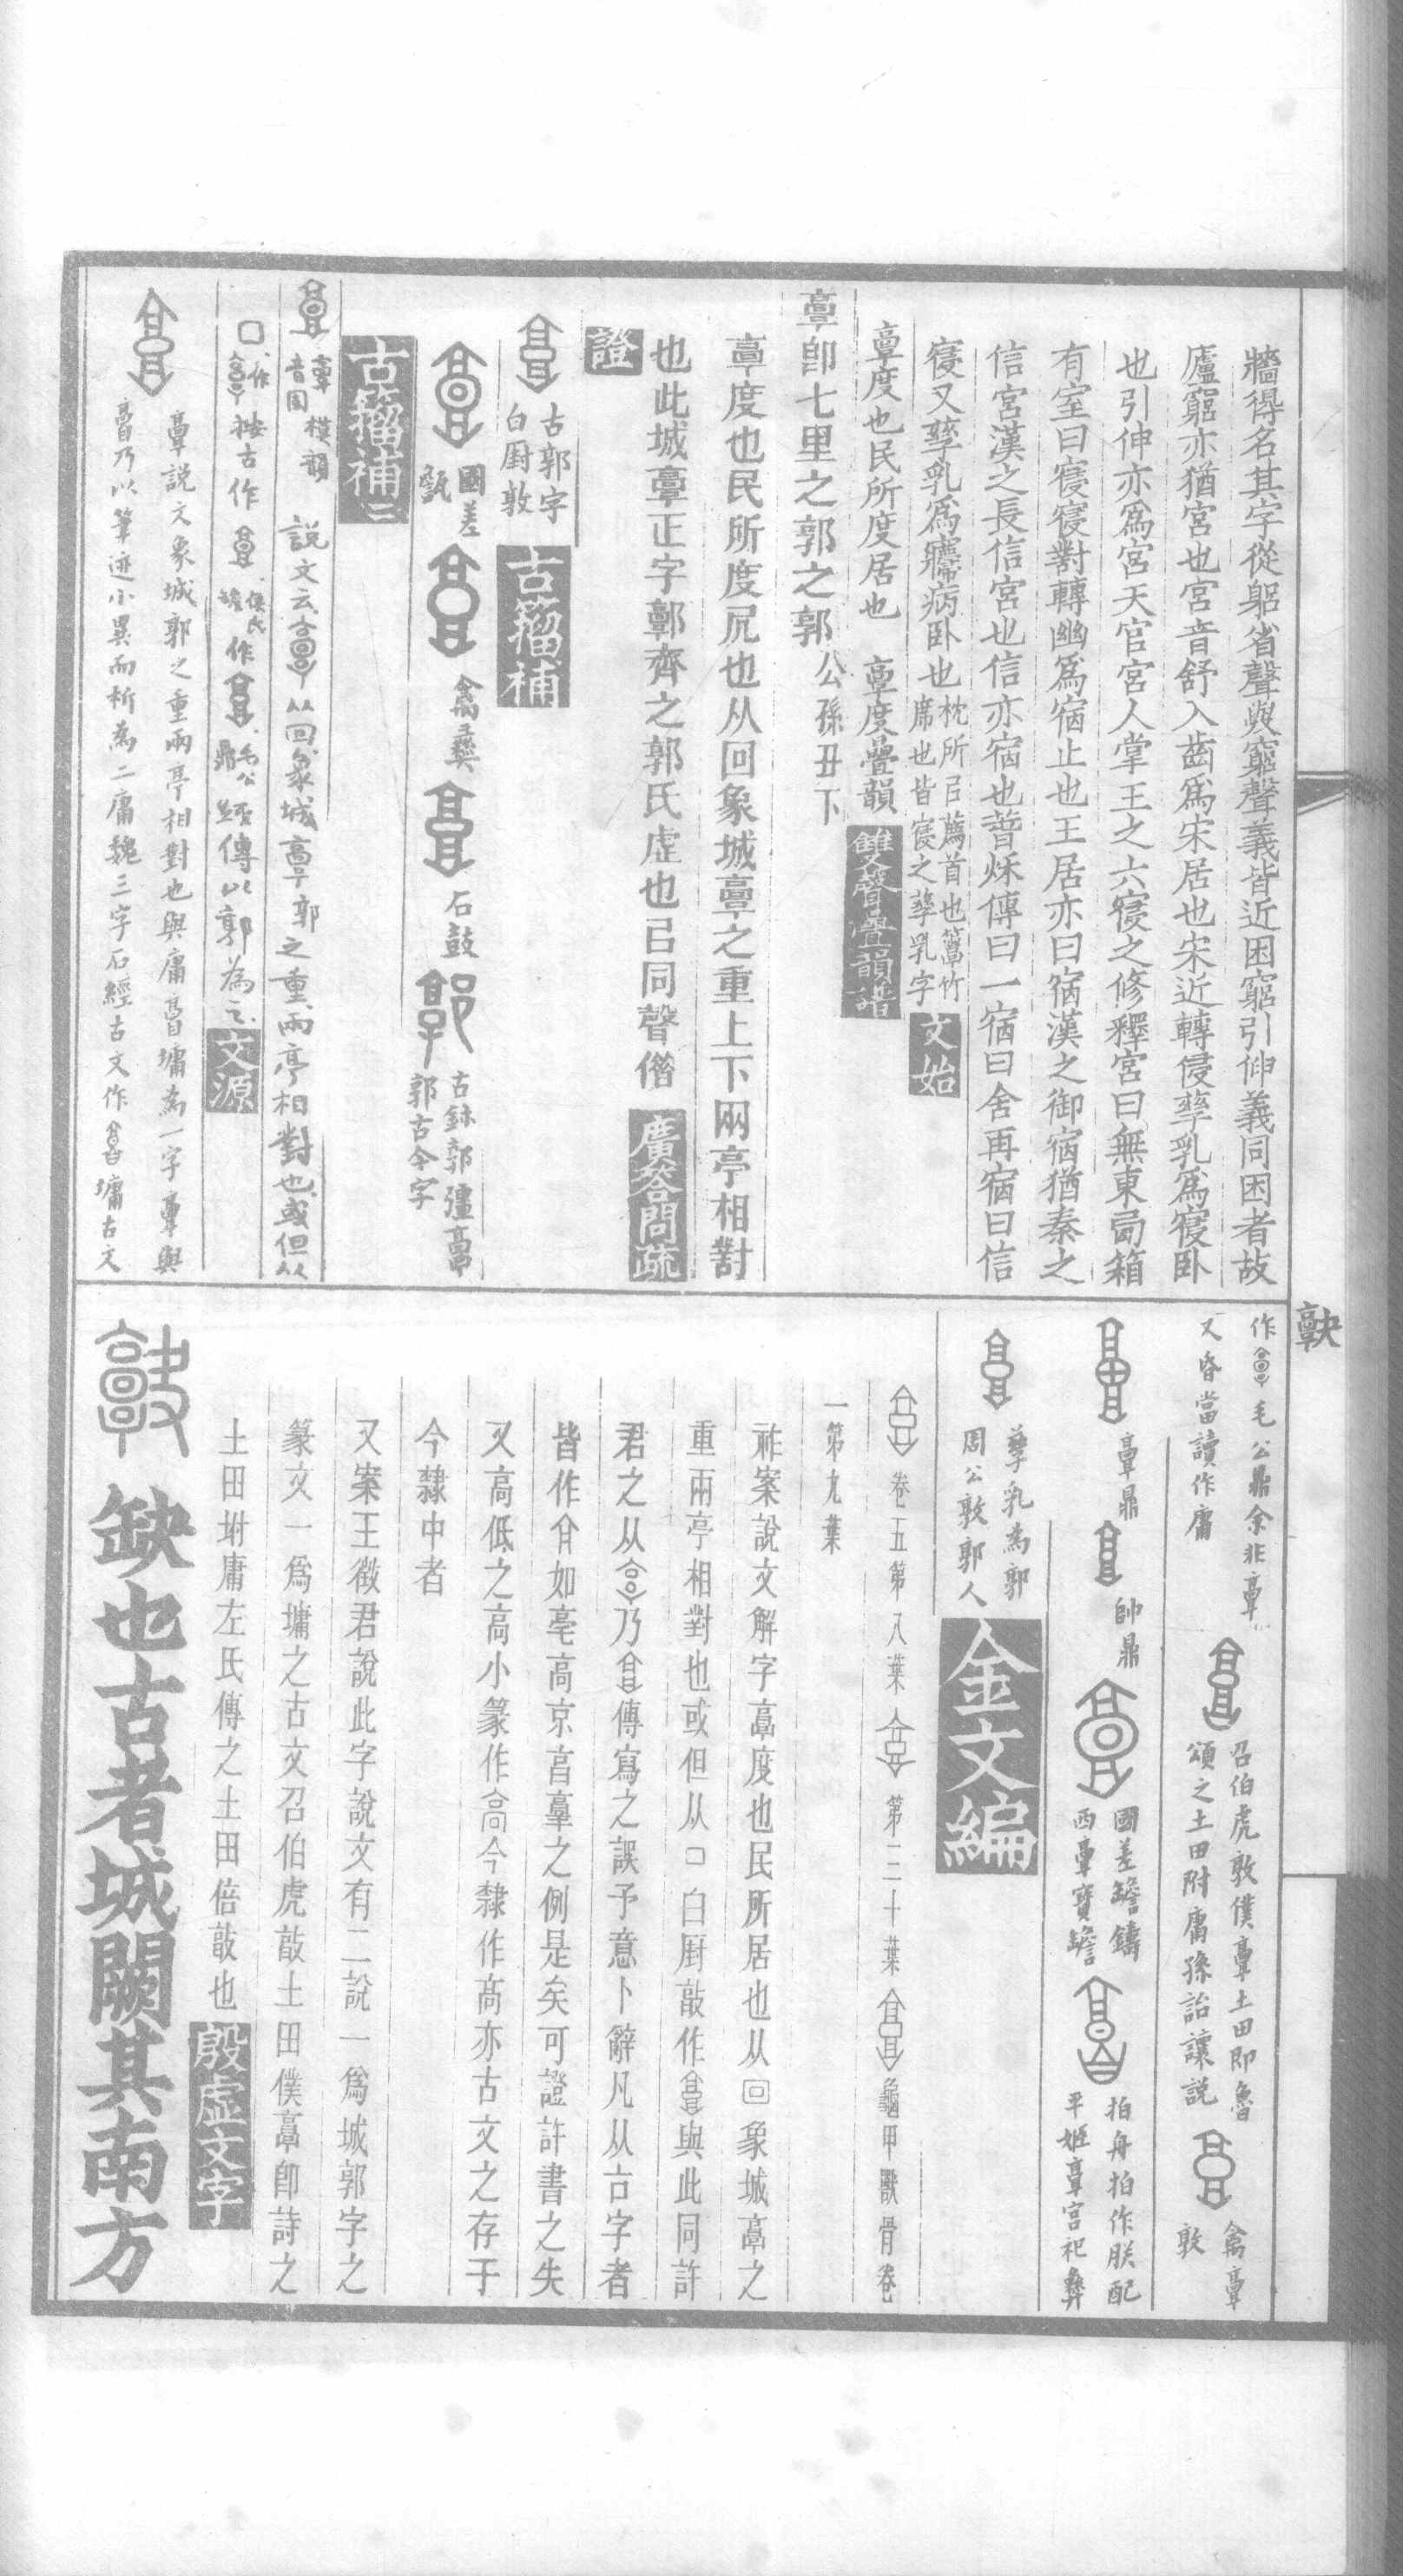 牆得名其字從躳省聲與窮聲義皆近困窮引伸義同困者故
廬窮亦猶宮也宮音舒入齒爲宋居也宋近轉侵孳乳爲寑卧
也引伸亦爲宮天官宮人掌王之六寑之修釋宮曰無東西箱
有室曰寑寑對轉幽爲宿止也王居亦曰宿漢之御宿猶秦之
信宮漢之長信宮也信亦宿也昔穌傳曰一宿曰舍再宿曰信
寑又孳乳爲㝱病卧也
枕所㠯薦首也䉛竹
席也皆寑之孳乳字
文始
𩫖度也民所度居也 𩫖度疊韻
雙聲疊韻譜
𩫖卽七里之郭之郭
公孫丑下
𩫖度也民所度凥也从回象城𩫖之重上下兩亭相對
也此城𩫖正字鄣齊之郭氏虛也㠯同聲借
廣答問疏
證
古郭字
白厨敦
古籀補
國差
𦉜
禽彝
石鼓
古鉢郭彊𩫖
郭古今字
古籀補二
𩫖
音圍
模韻
說文云从回象城𩫖郭之重兩亭相對也或但从
口
按古作
作
毛公鼎
經傳以郭為之
文源
𩫖說文象城郭之重兩亭相對也與庸𩫏墉為一字𩫖與
𩫏乃以筆迹小異而析為二庸魏三字石經古文作 墉古文
𩫖夬
作 毛公鼎余非𩫖
又昏當讀作庸
召伯虎敦僕𩫖土田即魯
頌之土田附庸孫詒讓說
禽𩫖
敦
𩫖鼎
帥鼎
國差𦉜鑄
西𩫖寶𦉜
拍舟拍作朕配
平姬𩫖宮祀彝
孳乳為郭
周公敦郭人
金文編
卷五第八葉
第三十葉
龜甲獸骨卷
一第九葉
祚案說文解字𩫖度也民所居也从回象城𩫖之
重兩亭相對也或但从口白厨敲作 與此同許
君之从 乃 傳寫之誤予意卜辭凡从古字者
皆作 如亳高京亯𦎫之例是矣可證許書之失
又高低之高小篆作高今隸作髙亦古文之存于
今隸中者
又案王徵君說此字說文有二說一爲城郭字之
篆文一爲墉之古文召伯虎敲土田僕𩫖卽詩之
土田坿庸左氏傳之土田倍敲也
殷虛文字
缺也古者城闕其南方